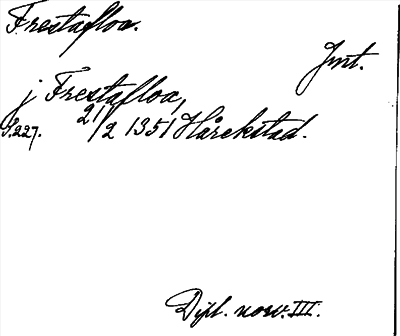 Frestafloa.
Jmt.
j Frestafloa,
S.227. 21/2 1351 Hårekstad.
Dipl. norv. III.